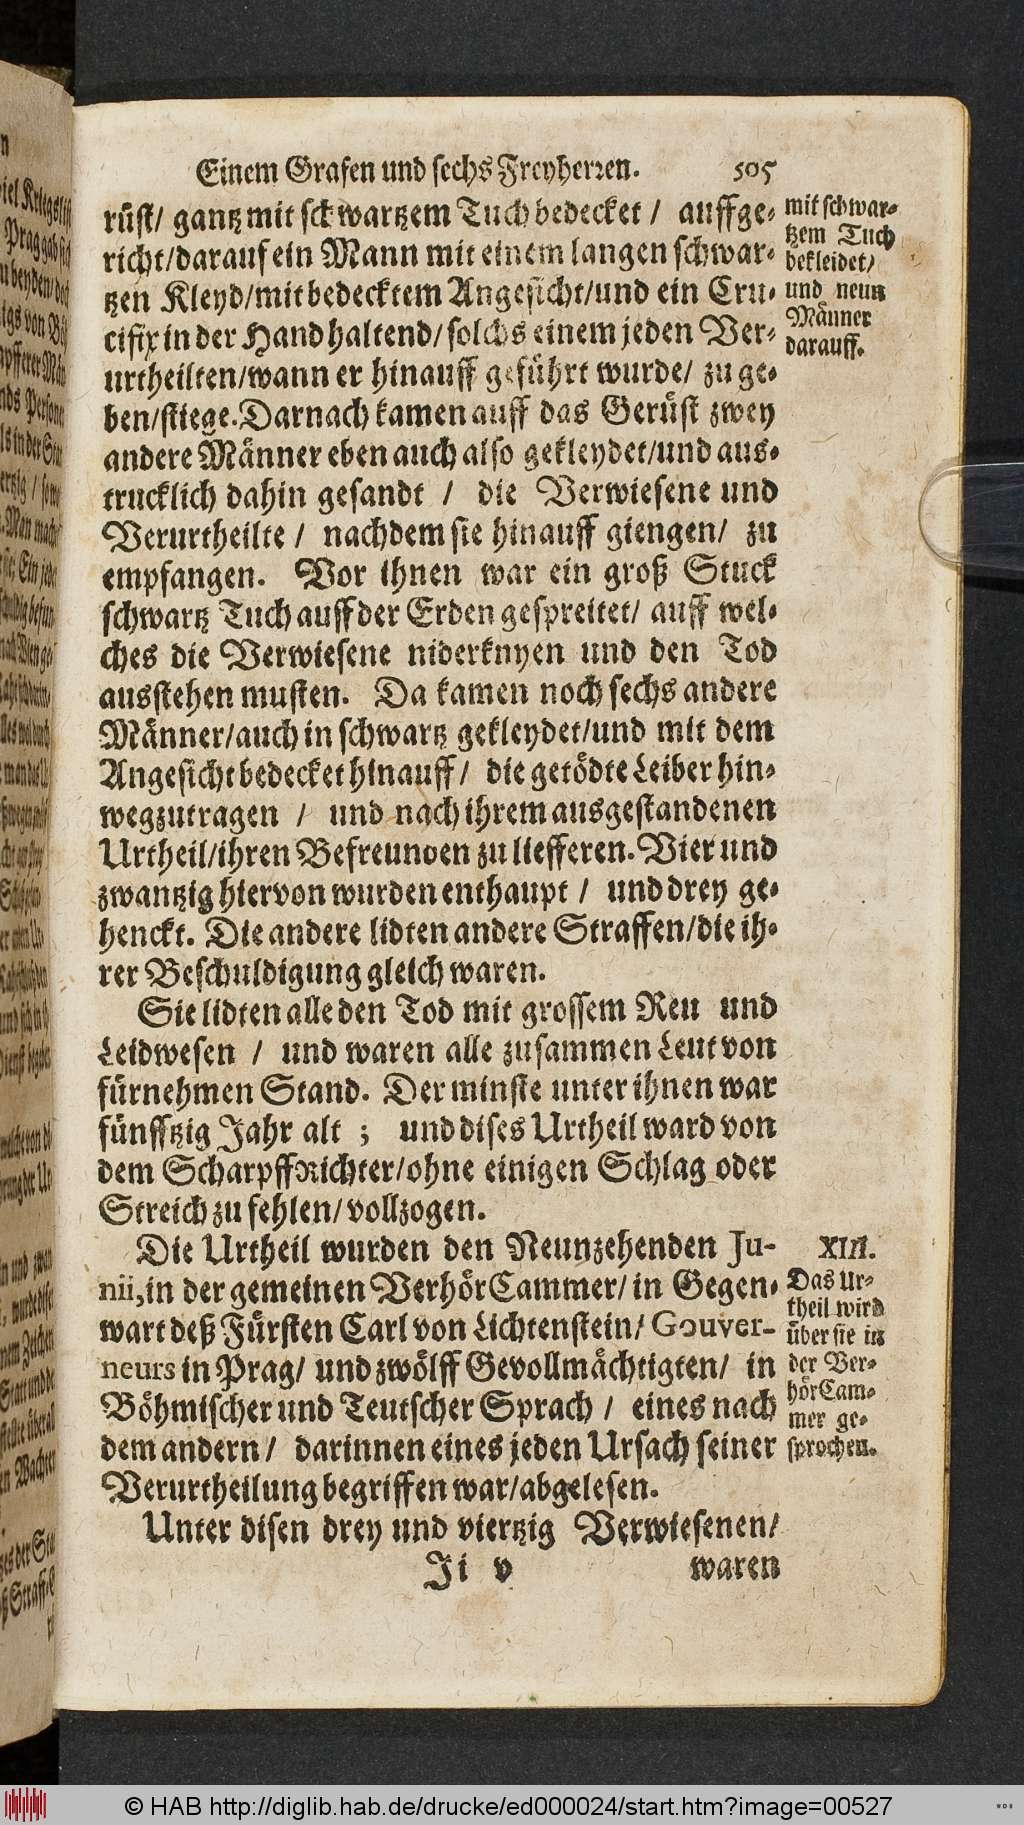 Einem Grafen und sechs Freyherꝛen. 505
rüst/ gantz mit schwartzem Tuch bedecket / auffge-
richt/darauf ein Mann mit einem langen schwar-
tzen Kleyd/mit bedecktem Angesicht/und ein Cru-
cifix in der Hand haltend/ solchs einem jeden Ver-
urtheilten/wann er hinauff geführt wurde/ zu ge-
ben/stiege. Darnach kamen auff das Gerüst zwey
andere Männer eben auch also gekleydet/und aus-
trucklich dahin gesandt / die Verwiesene und
Verurtheilte / nachdem sie hinauff giengen/ zu
empfangen. Vor ihnen war ein groß Stuck
schwartz Tuch auff der Erden gespreitet/ auff wel-
ches die Verwiesene niderknyen und den Tod
ausstehen musten. Da kamen noch sechs andere
Männer/auch in schwartz gekleydet/und mit dem
Angesicht bedecket hinauff / die getödte Leiber hin-
wegzutragen / und nach ihrem ausgestandenen
Urtheil/ihren Befreunden zu liefferen. Vier und
zwantzig hiervon wurden enthaupt / und drey ge-
henckt. Die andere lidten andere Straffen/die ih-
rer Beschuldigung gleich waren.
Sie lidten alle den Tod mit grossem Reu und
Leidwesen / und waren alle zusammen Leut von
fürnehmen Stand. Der minste unter ihnen war
fünfftzig Jahr alt ; und dises Urtheil ward von
dem ScharpffRichter/ohne einigen Schlag oder
Streich zu fehlen/vollzogen.
Die Urtheil wurden den Neunzehenden Ju-
nii, in der gemeinen VerhörCammer/ in Gegen-
wart deß Fürsten Carl von Lichtenstein/ Gouver-
neurs in Prag/ und zwölff Gevollmächtigten/ in
Böhmischer und Teutscher Sprach / eines nach
dem andern / darinnen eines jeden Ursach seiner
Verurtheilung begriffen war/abgelesen.
Unter disen drey und viertzig Verwiesenen/
Ji v waren
mit schwar-
tzem Tuch
bekleidet/
und neun
Männer
darauff.
XIII.
Das Ur-
theil wird
über sie in
der Ver-
hörCam-
mer ge-
sprochen.
© HAB http://diglib.hab.de/drucke/ed000024/start.htm?image=00527